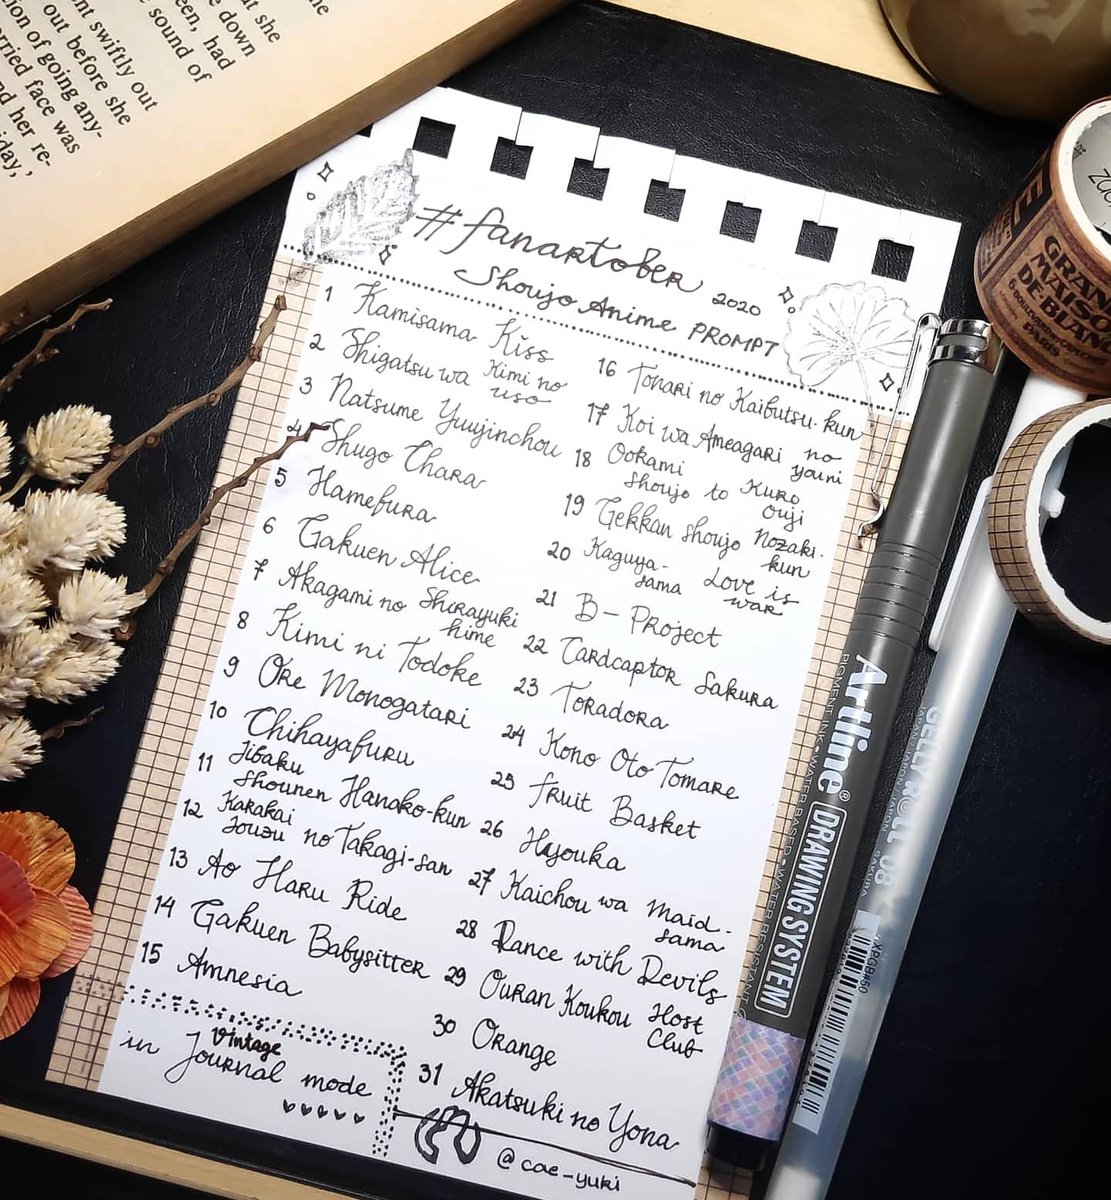 the
at she
e down
een, had
e sound of
nt swiftly out
out before she
tion of going any-
orried face was
nd her re-
iday,
#fanartober 2020
Shoujo Anime PROMPT
1 Kamisama Kiss
2 Shigatsu wa Kimi no
uso
3 Natsume Yuujinchou
4 Shugo Chara
5 Hamefura
6 Gakuen Alice
7 Akagami no Shirayuki
hime
8 Kimi ni Todoke
9 Ore Monogatari
10 Chihayafuru
11 Jibaku
Shounen Hanako-kun
12 Karakai
Jouzu no Takagi-san
13 Ao Haru Ride
14 Gakuen Babysitter
15 Amnesia
16 Tonari no Kaibutsu-kun
17 Koi wa Ameagari no
youni
18 Ookami
Shoujo to Kuro
Ouji
19 Gekkan Shoujo Nozaki-
kun
20 Kaguya-
sama Love is
war
21 B-Project
22 Cardcaptor Sakura
23 Toradora
24 Kono Oto Tomare
25 Fruit Basket
26 Hyouka
27 Kaichou wa Maid-
sama
28 Dance with Devils
29 Ouran Koukou Host
Club
30 Orange
31 Akatsuki no Yona
in Vintage
Journal mode
@cae-yuki
GRAN
MAISO
DE-BLANC
PARIS
Artline®
DRAWING SYSTEM
PIGMENT INK • WATER BASED • WATER RESISTANT
GELLY ROLL 08
SAKURA
XPGB#50